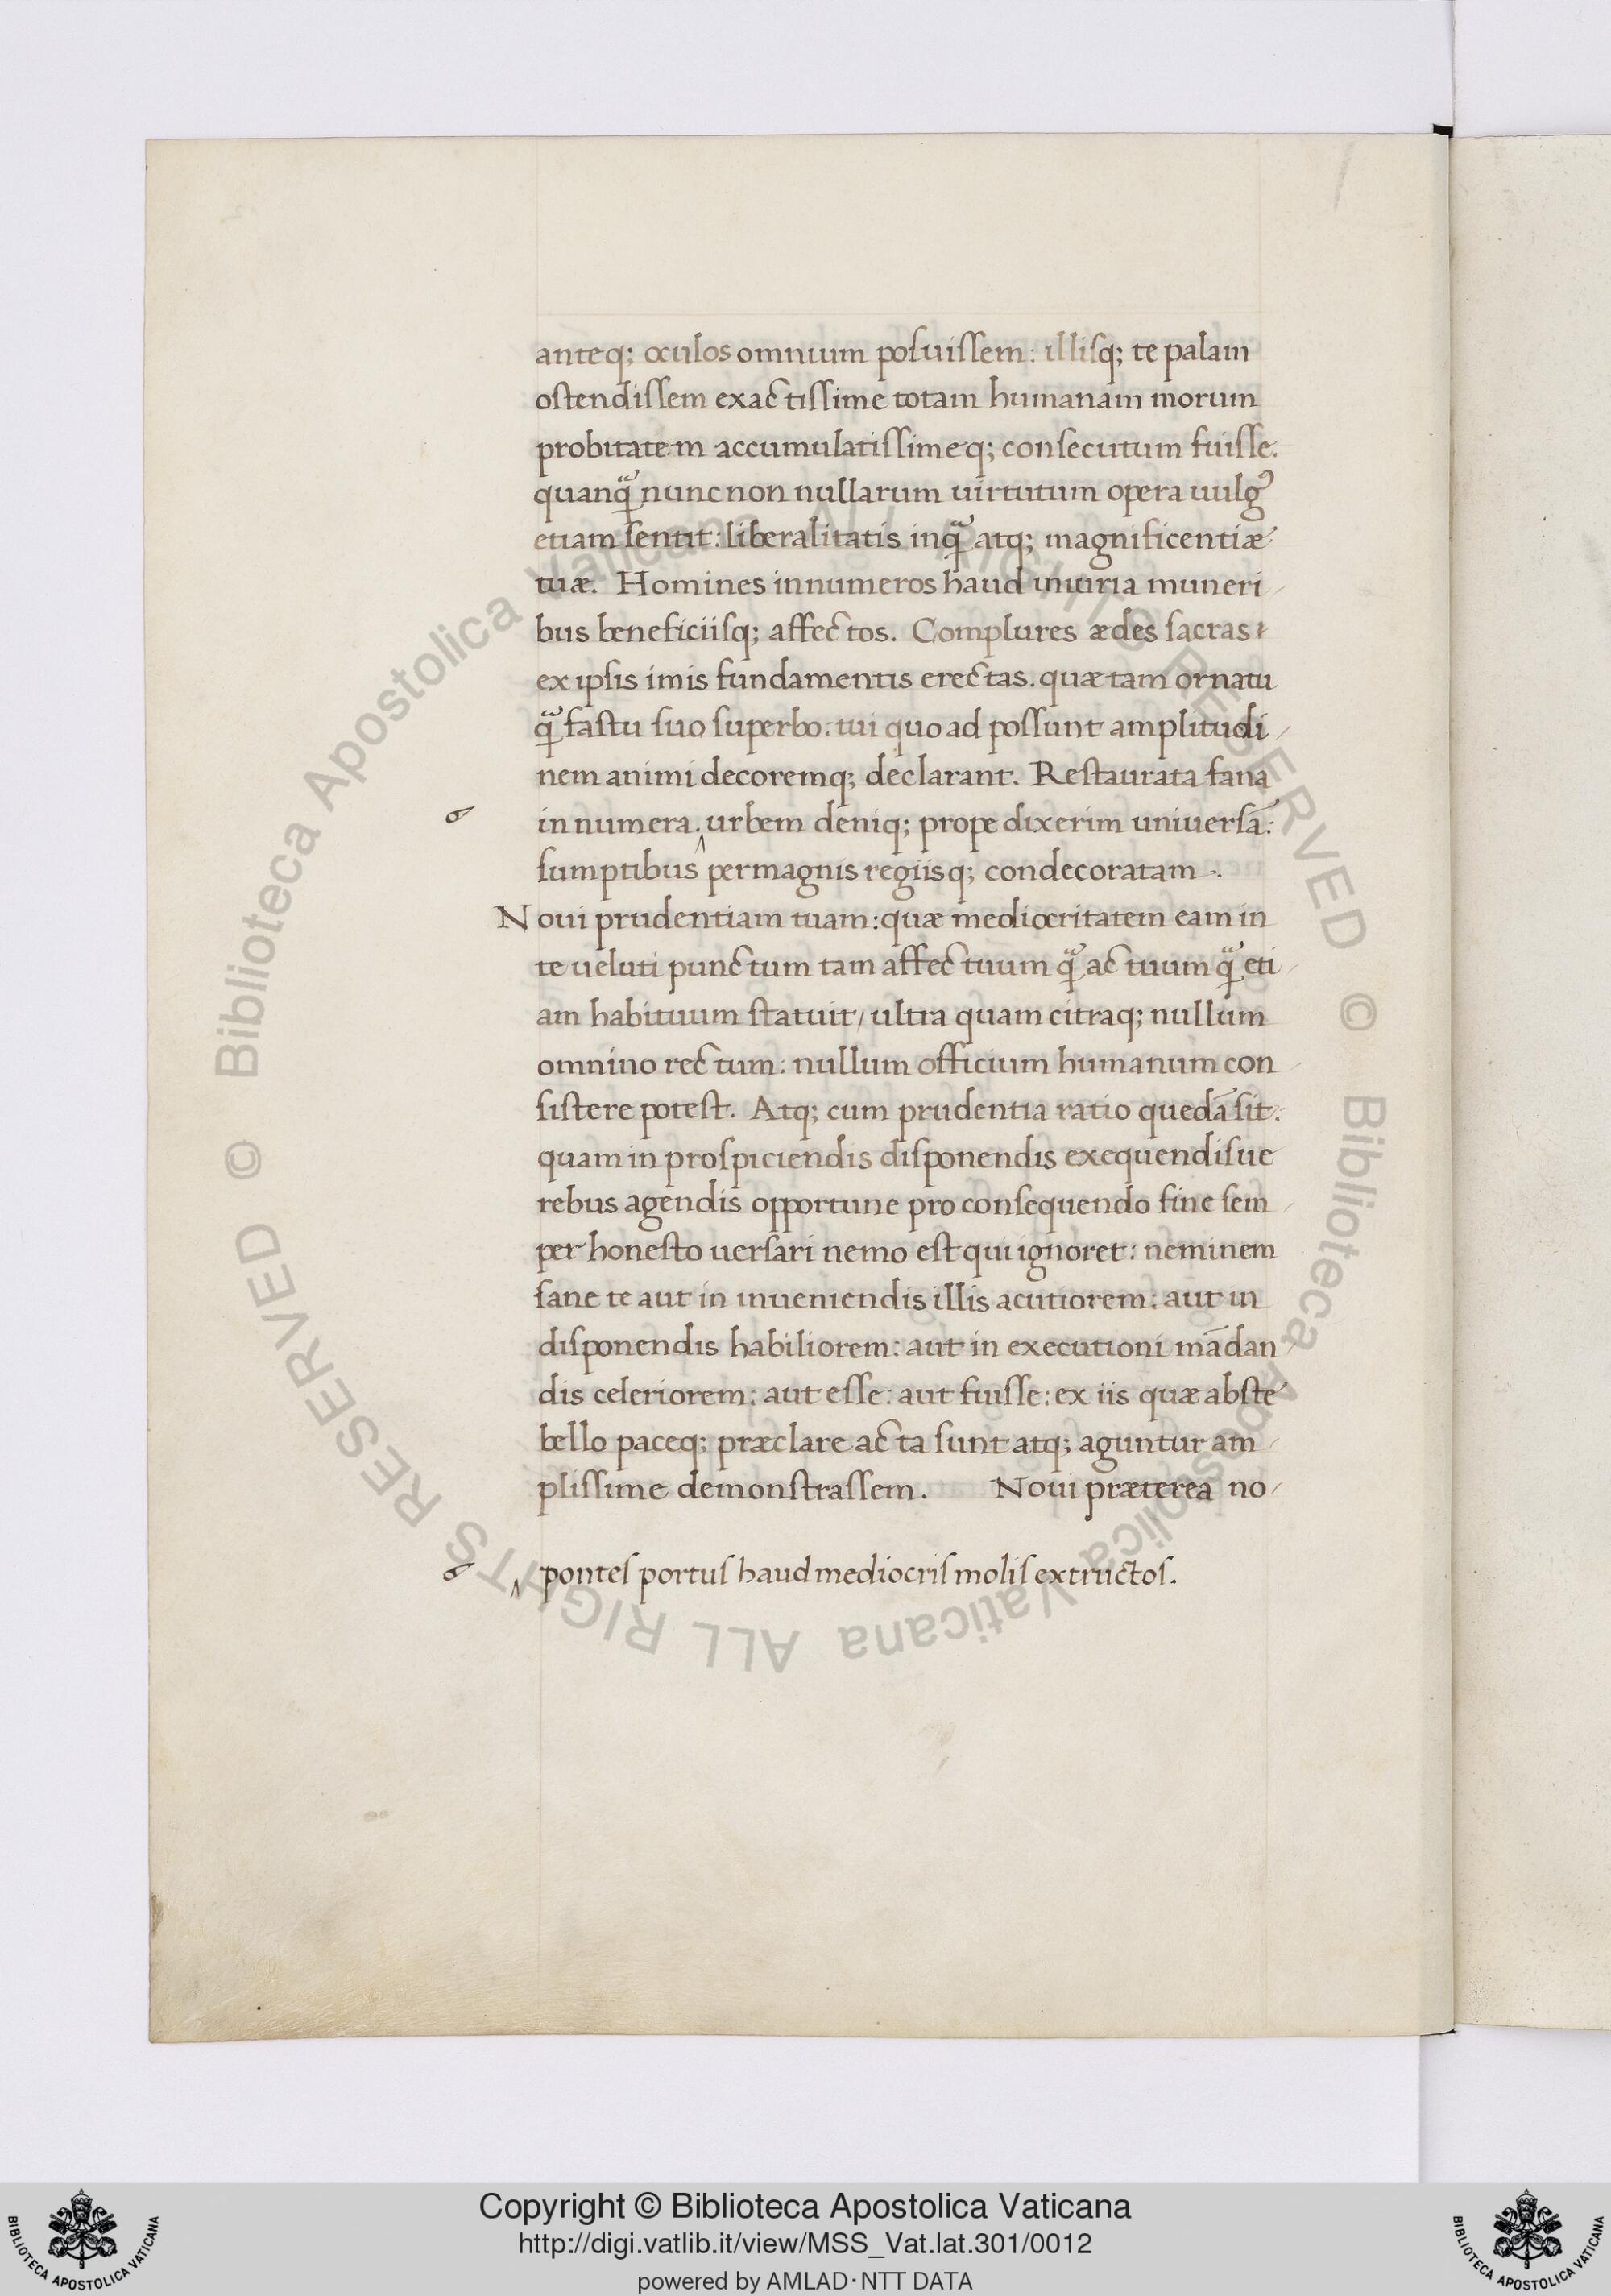 anteq; oculos omnium poſuiſſem: illiſq; te palam
oſtendiſſem exactiſſime totam humanam morum
probitatem accumulatiſſimeq; conſecutum fuiſſe.
quanq̃ nunc non nullarum uirtutum opera uulgꝰ
etiam ſentit: liberalitatis inq̃ atq; magnificentiæ
tuæ. Homines innumeros haud iniuria muneri
bus beneficiiſq; affectos. Complures ædes ſacras
ex ipſis imis fundamentis erectas. quæ tam ornatu
q̃ faſtu ſuo ſuperbo: tui quo ad poſſunt amplitudi
nem animi decoremq; declarant. Reſtaurata fana
innumera. urbem deniq; prope dixerim uniuerſā:
ſumptibus permagnis regiisq; condecoratam.
Noui prudentiam tuam: quæ mediocritatem eam in
te ueluti punctum tam affectuum q̃ actuum q̃ eti
am habituum ſtatuit/ ultra quam citraq; nullum
omnino rectum: nullum officium humanum con
ſiſtere poteſt. Atq; cum prudentia ratio quedā ſit:
quam in proſpiciendis diſponendis exequendiſue
rebus agendis opportune pro conſequendo fine ſem
per honeſto uerſari nemo eſt qui ignoret: neminem
ſane te aut in inueniendis illis acutiorem: aut in
diſponendis habiliorem: aut in executioni mādan
dis celeriorem: aut eſſe: aut fuiſſe: ex iis quæ abſte
bello paceq; præclare acta ſunt atq; aguntur am
pliſſime demonſtraſſem. Noui præterea no
ponteſ portuſ haud mediocriſ moliſ extructoſ.
© Biblioteca Apostolica Vaticana ALL RIGHTS RESERVED © Biblioteca Apostolica Vaticana ALL RIGHTS RESERVED
Copyright © Biblioteca Apostolica Vaticana
http://digi.vatlib.it/view/MSS_Vat.lat.301/0012
powered by AMLAD·NTT DATA
BIBLIOTECA APOSTOLICA VATICANA
BIBLIOTECA APOSTOLICA VATICANA